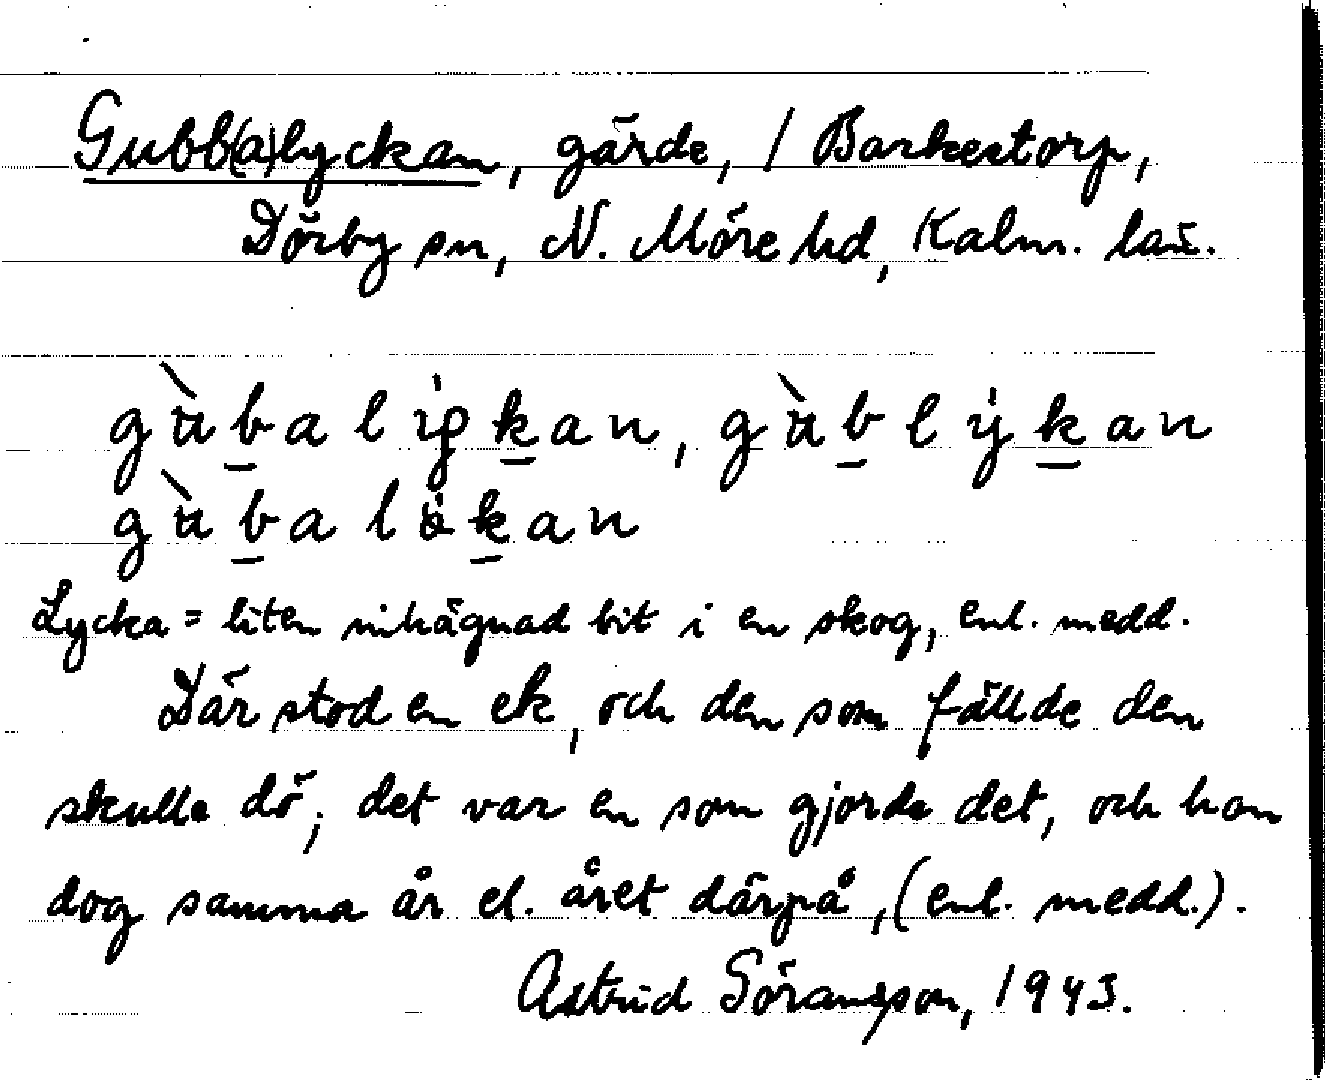 Gubb(a)lyckan, gärde, / Barkestorp,
Dörby sn, N. Möre hd, Kalm. län.
gùbalykan, gùblykan
gùbalökan
Lycka = liten inhägnad bit i en skog, enl. medd.
Där stod en ek, och den som fällde den
skulle dö; det var en som gjorde det, och han
dog samma år el. året därpå, (enl. medd.).
Astrid Göransson, 1943.